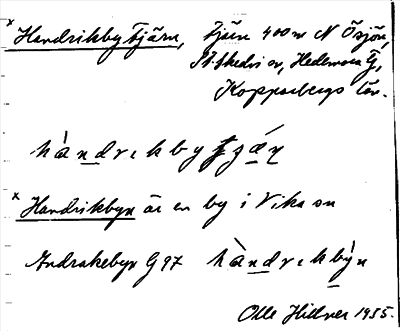 × Handrikbytjärn, tjärn 400 m N Ösjön,
St. Skedvi sn, Hedemora Tg,
Kopparbergs län.
hàndrɩkby
× Handrikbyn är en by i Vika sn
Andrakebyn G97 hàndrɩkbỳn
Olle Hidner 1955.